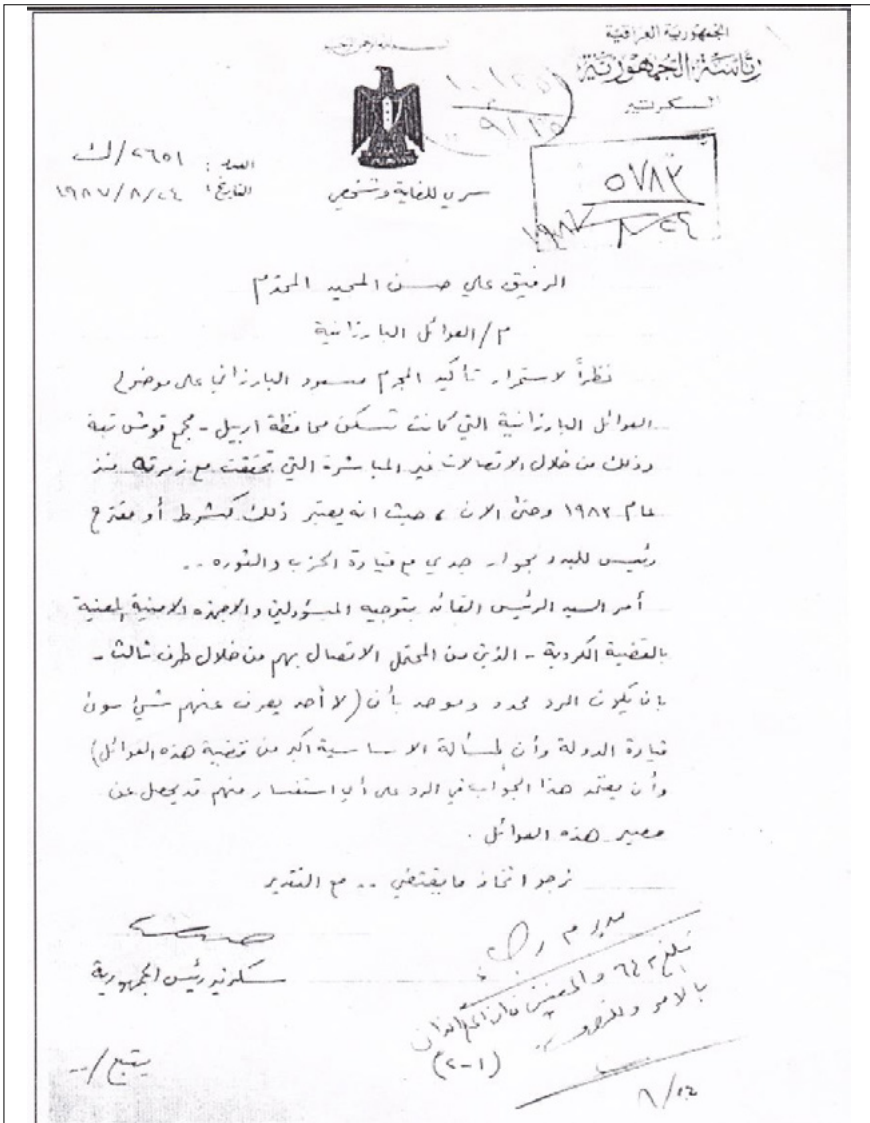 الجمهورية العراقية
رئاسة الجمهورية
السكرتير
بسم الله الرحمن الرحيم
العدد : ٢٦٥١/ك
التاريخ : ١٩٨٧/٨/٢٤
سري للغاية وشخصي
٥٧٨٣
٨ ٢٤
الرفيق علي حسن المجيد المحترم
م/العوائل البارزانية
نظراً لاستمرار تأكيد المجرم مسعود البارزاني على موضوع
العوائل البارزانية التي كانت تسكن محافظة اربيل - مجمع قوش تبة
وذلك من خلال الاتصالات غير المباشرة التي تحققت مع زمرته منذ
عام ١٩٨٣ وحتى الان ، حيث انه يعتبر ذلك كشرط أو مقترح
رئيس للبدء بحوار جدي مع قيادة الحزب والثوره ..
أمر السيد الرئيس القائد بتوجيه المسؤولين والاجهزه الامنية المعنية
بالقضية الكردية - الذين من المحتمل الاتصال بهم من خلال طرف ثالث -
بان يكون الرد محدد وموحد بأن (لا أحد يعرف عنهم شيئ سوى
قيادة الدولة وأن المسألة الاساسية اكبر من قضية هذه العوائل)
وأن يعتمد هذا الجواب في الرد على أي استفسار منهم قد يحصل عن
مصير هذه العوائل .
نرجو اتخاذ مايقتضي .. مع التقدير
سكرتير رئيس الجمهورية
(١-٢)
٨/٢٤
يتبع/..